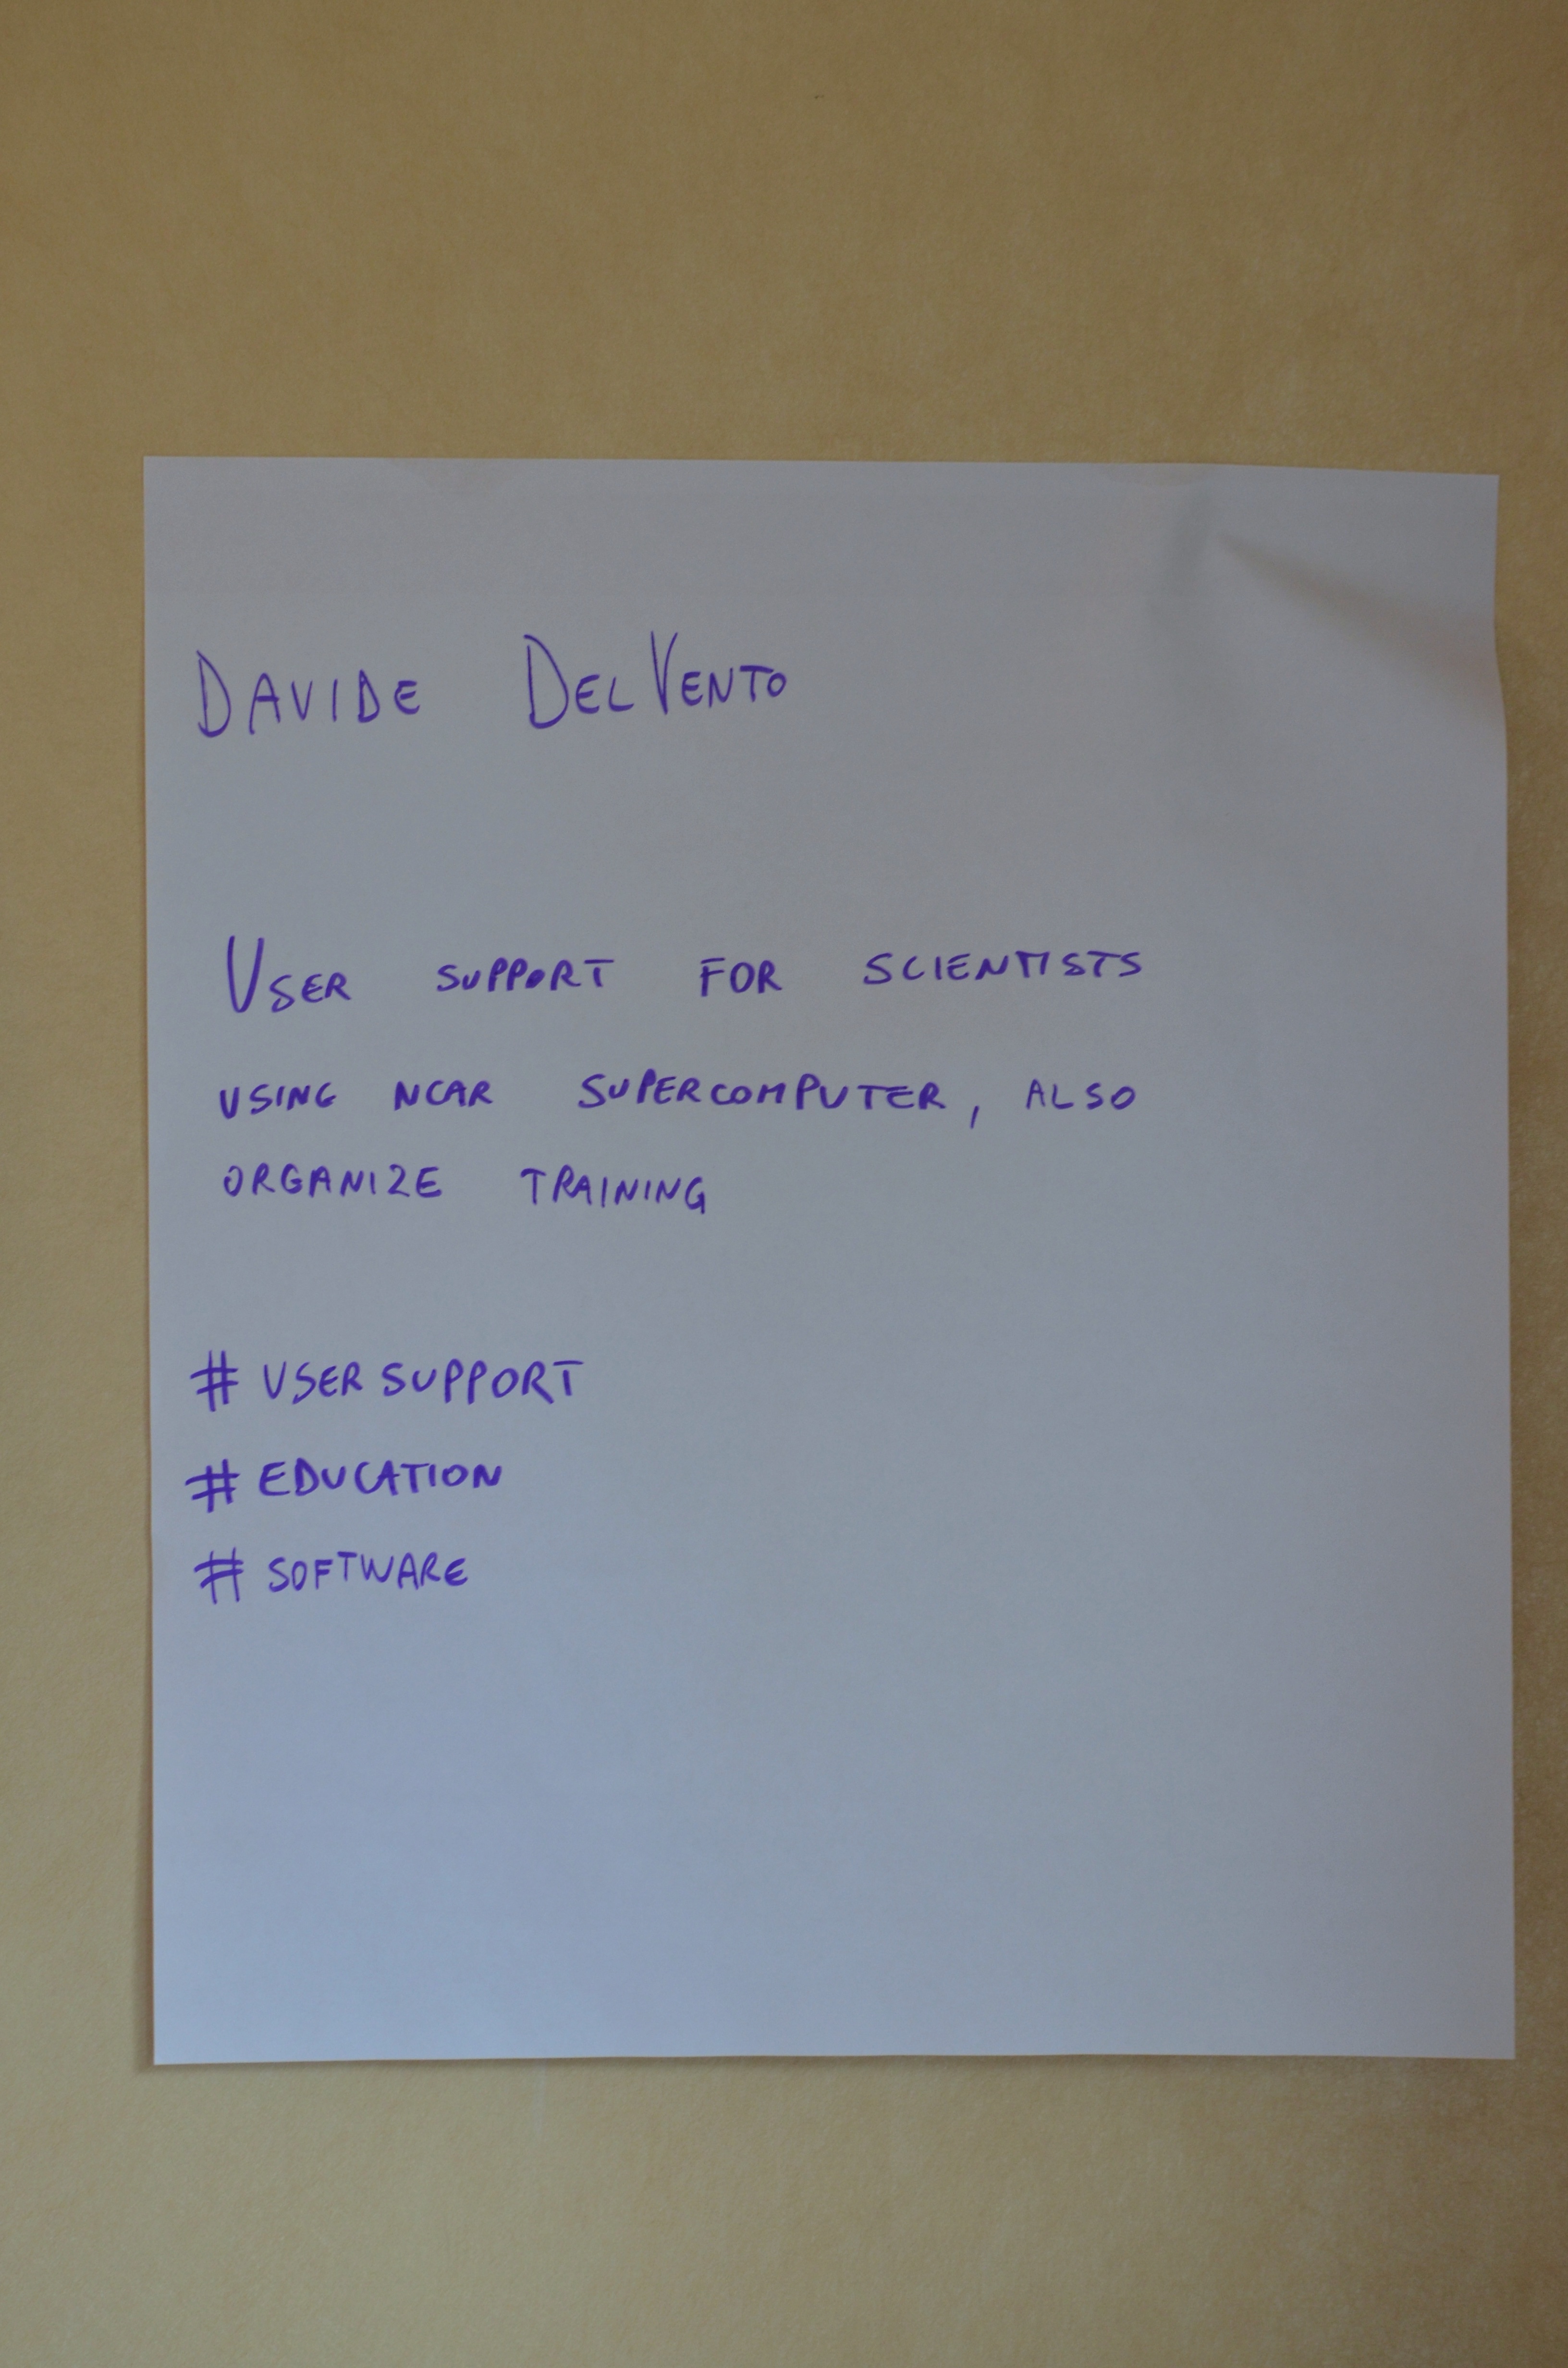 DAVIDE DELVENTO
USER SUPPORT FOR SCIENTISTS
USING NCAR SUPERCOMPUTER, ALSO
ORGANIZE TRAINING
# USERSUPPORT
# EDUCATION
# SOFTWARE